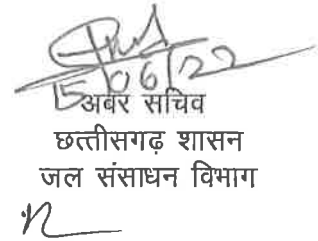 15/06/22
अवर सचिव
छत्तीसगढ़ शासन
जल संसाधन विभाग